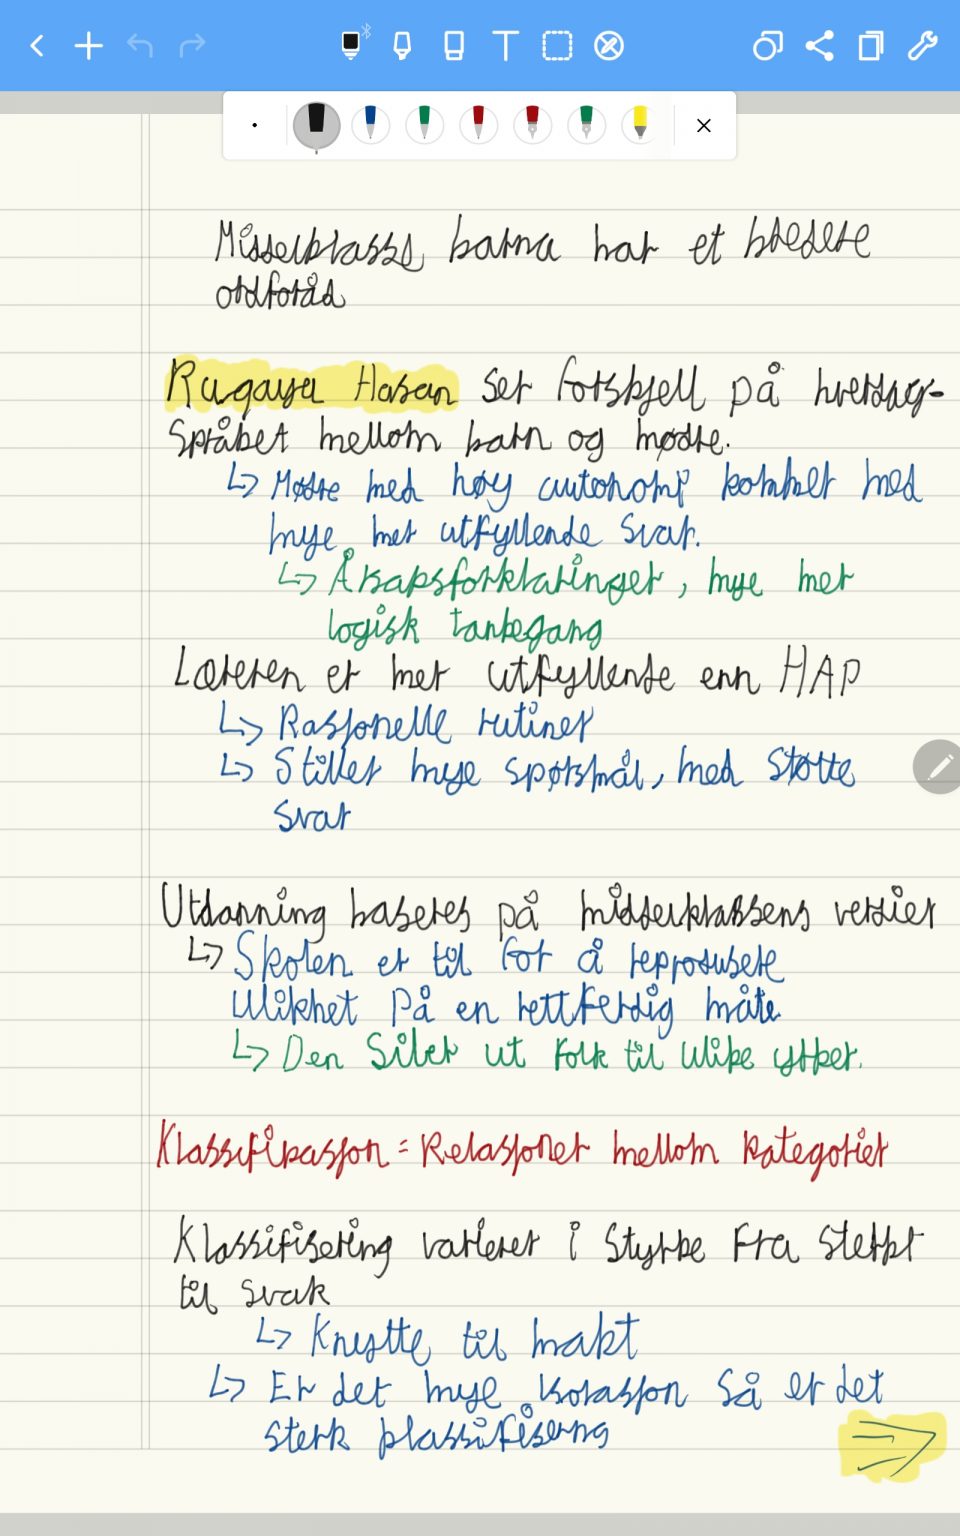 Middelklasse barna har et bredere
ordforåd
Ruqaya Hasan ser forskjell på hverdags-
språket mellom barn og mødre.
↳ Mødre med høy autonomi kommer med
mye mer utfyllende svar.
↳ Årsaksforklaringer, mye mer
logisk tankegang
Læreren er mer utfyllende enn HAP
↳ Rasjonelle rutiner
↳ Stiller mye spørsmål, med støtte
svar
Utdanning baseres på middelklassens verdier
↳ Skolen er til for å reprodusere
ulikhet på en rettferdig måte
↳ Den siler ut folk til ulike yrker.
Klassifikasjon = Relasjoner mellom kategorier
Klassifisering varierer i styrke fra sterkt
til svak
↳ Knytte til makt
↳ Er det mye isolasjon så er det
sterk klassifisering